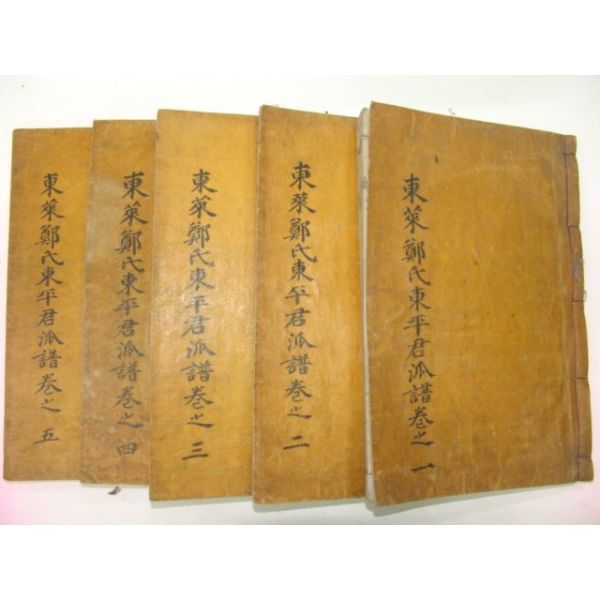 東萊鄭氏東平君派譜卷之一
東萊鄭氏東平君派譜卷之二
東萊鄭氏東平君派譜卷之三
東萊鄭氏東平君派譜卷之四
東萊鄭氏東平君派譜卷之五